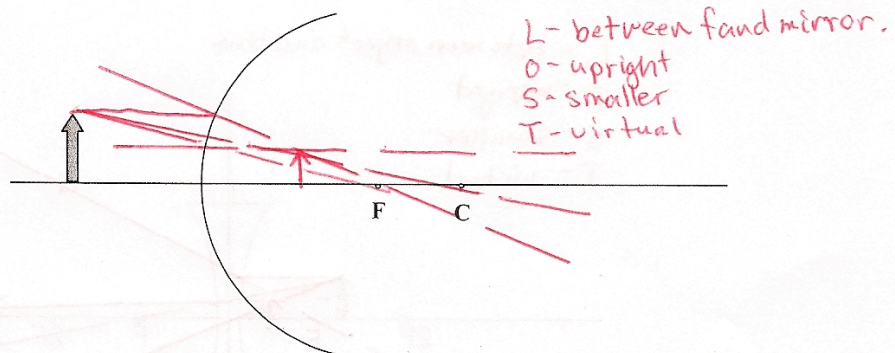 L- between f and mirror.
O- upright
S- smaller
T- virtual
F C